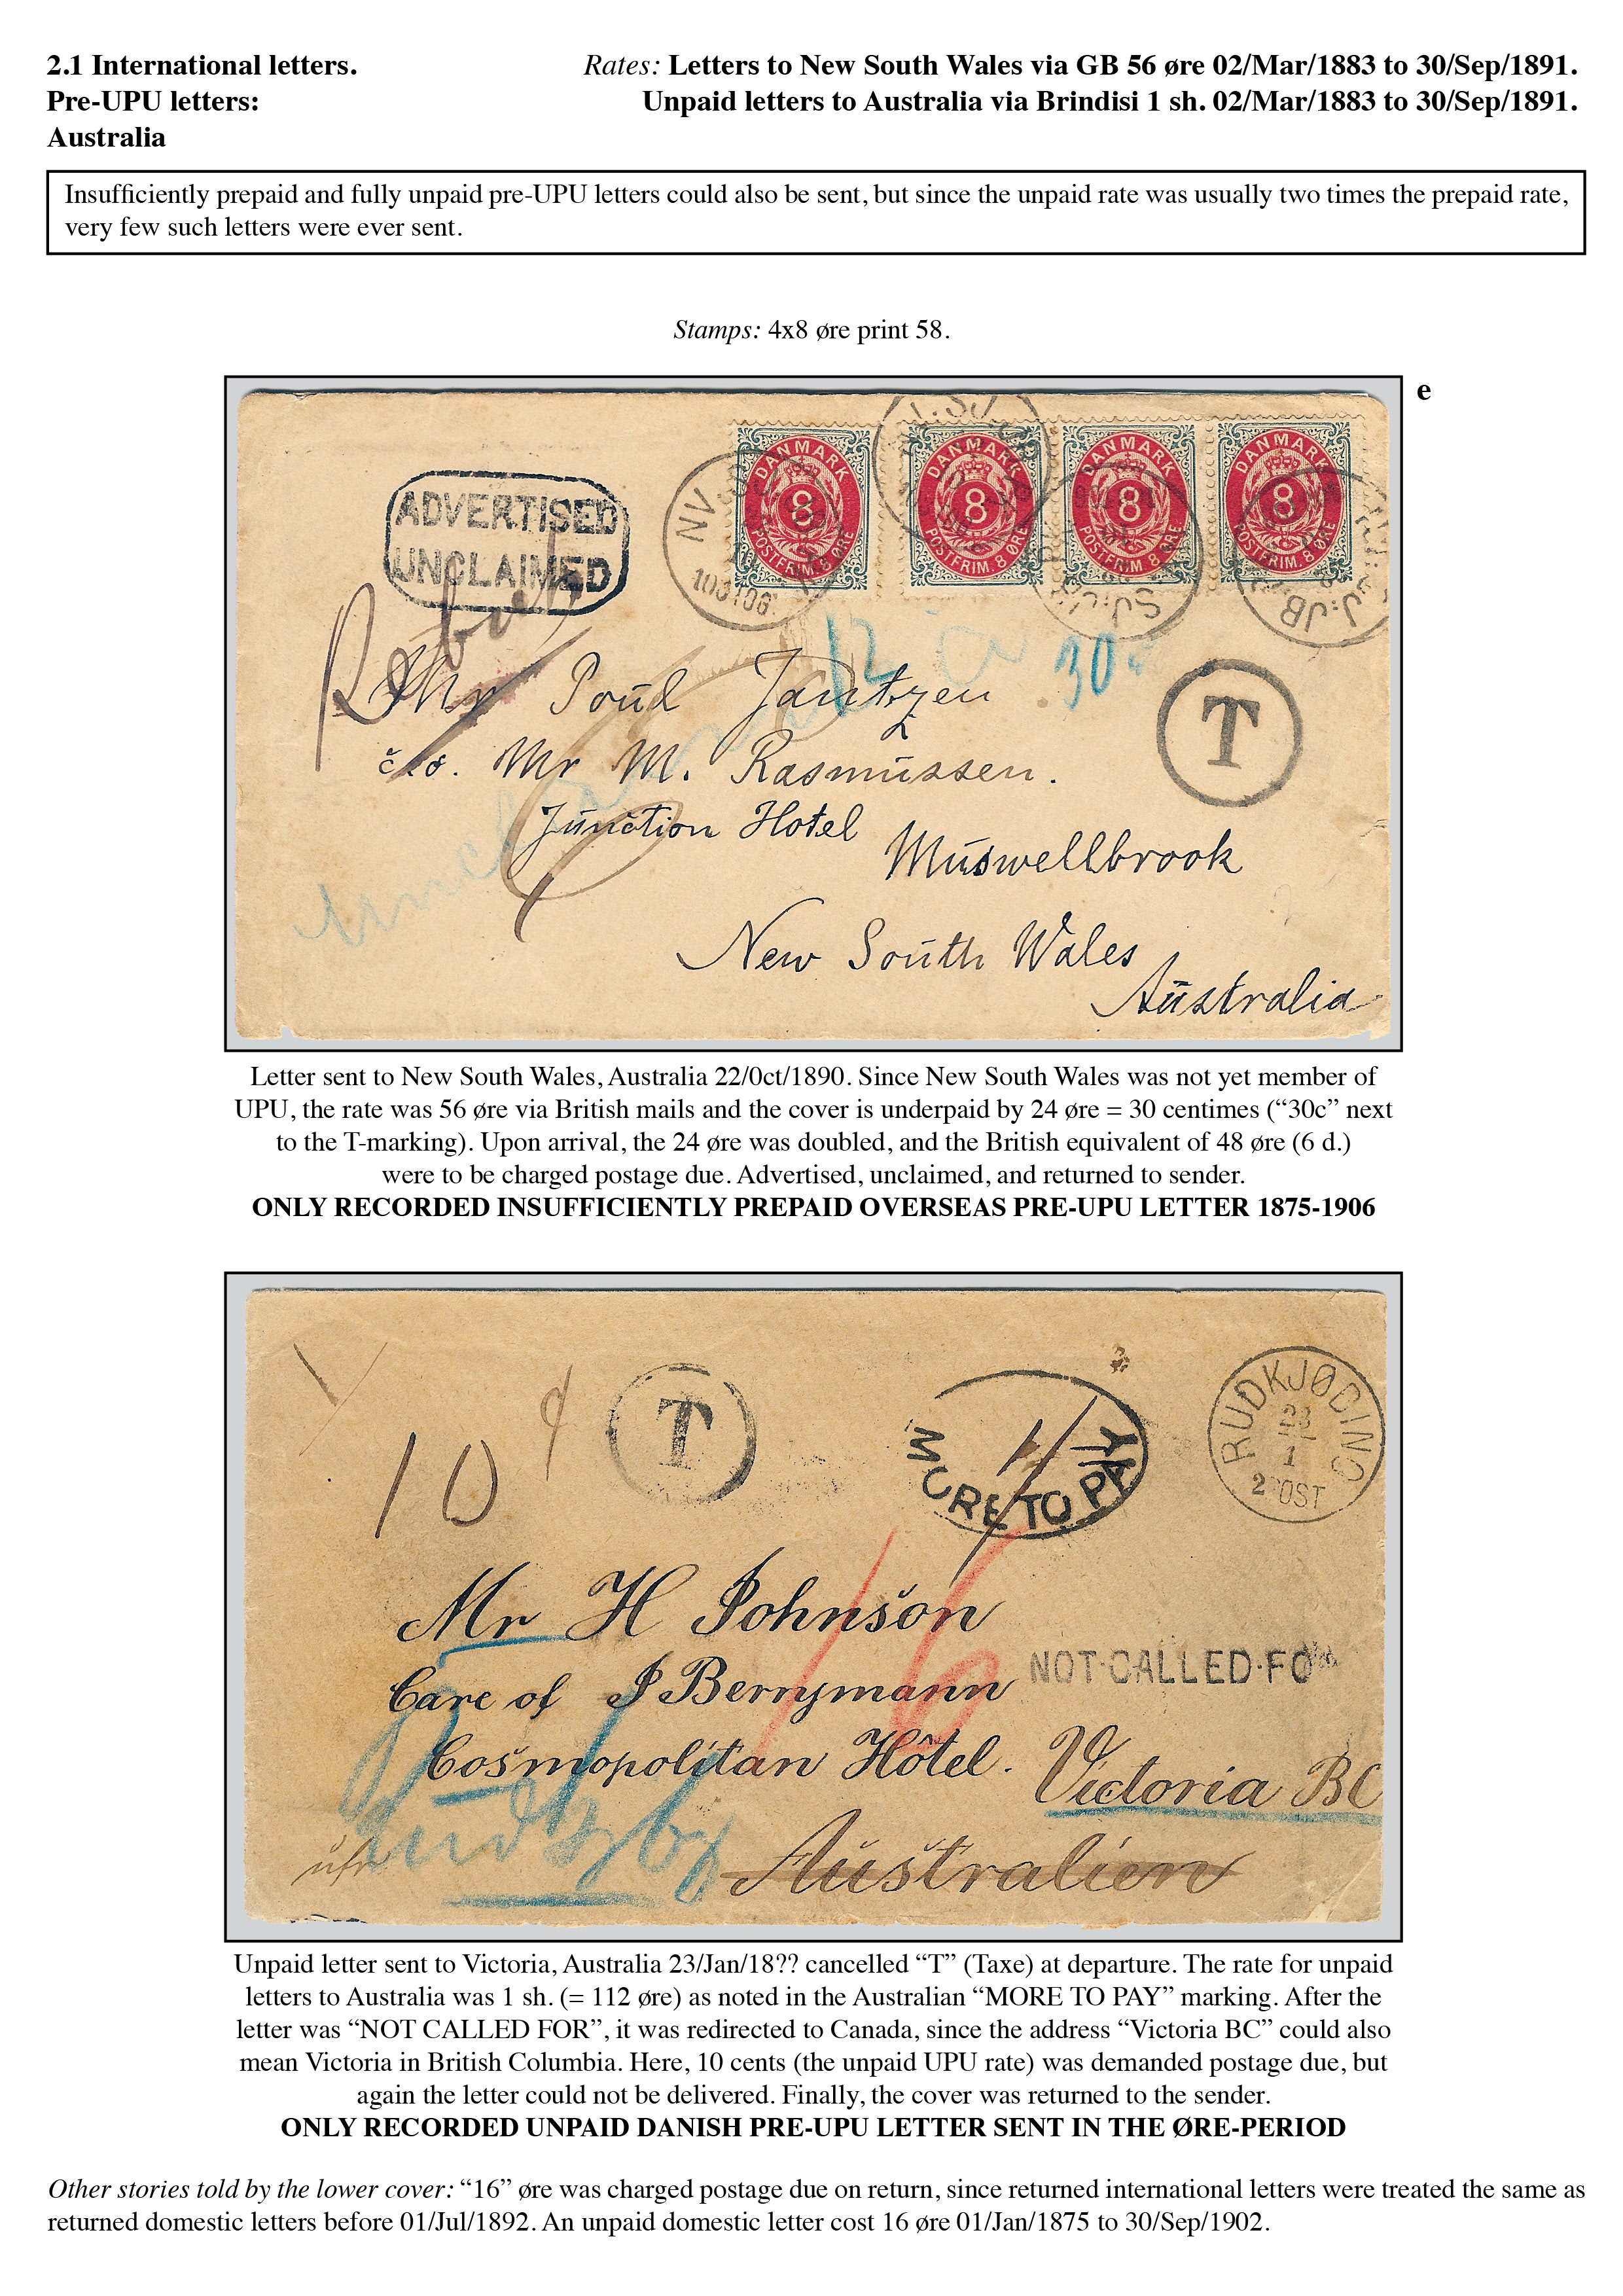 2.1 International letters.
Pre-UPU letters:
Australia
Rates: Letters to New South Wales via GB 56 øre 02/Mar/1883 to 30/Sep/1891.
Unpaid letters to Australia via Brindisi 1 sh. 02/Mar/1883 to 30/Sep/1891.
Insufficiently prepaid and fully unpaid pre-UPU letters could also be sent, but since the unpaid rate was usually two times the prepaid rate,
very few such letters were ever sent.
Stamps: 4x8 øre print 58.
e
DANMARK 8 POSTFRIM. 8 ØRE
DANMARK 8 POSTFRIM. 8 ØRE
DANMARK 8 POSTFRIM 8 ØRE
DANMARK 8 POSTFRIM. 8 ØRE
ADVERTISED
UNCLAIMED
12
30c
T
Poul Jantzen
c/o. Mr M. Rasmussen.
Junction Hotel
Muswellbrook
New South Wales
Australia
Letter sent to New South Wales, Australia 22/0ct/1890. Since New South Wales was not yet member of
UPU, the rate was 56 øre via British mails and the cover is underpaid by 24 øre = 30 centimes (“30c” next
to the T-marking). Upon arrival, the 24 øre was doubled, and the British equivalent of 48 øre (6 d.)
were to be charged postage due. Advertised, unclaimed, and returned to sender.
ONLY RECORDED INSUFFICIENTLY PREPAID OVERSEAS PRE-UPU LETTER 1875-1906
10
T
MORE TO PAY
1/
RUDKJØBING
23
1
2 POST
16
Mr H Johnson
Care of J Berrymann
NOT CALLED FO
Cosmopolitan Hôtel.
Victoria BC
Australien
Unpaid letter sent to Victoria, Australia 23/Jan/18?? cancelled “T” (Taxe) at departure. The rate for unpaid
letters to Australia was 1 sh. (= 112 øre) as noted in the Australian “MORE TO PAY” marking. After the
letter was “NOT CALLED FOR”, it was redirected to Canada, since the address “Victoria BC” could also
mean Victoria in British Columbia. Here, 10 cents (the unpaid UPU rate) was demanded postage due, but
again the letter could not be delivered. Finally, the cover was returned to the sender.
ONLY RECORDED UNPAID DANISH PRE-UPU LETTER SENT IN THE ØRE-PERIOD
Other stories told by the lower cover: “16” øre was charged postage due on return, since returned international letters were treated the same as
returned domestic letters before 01/Jul/1892. An unpaid domestic letter cost 16 øre 01/Jan/1875 to 30/Sep/1902.